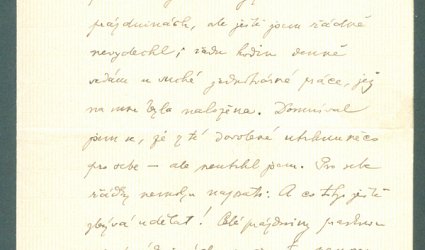 prázdninách, ale ještě jsem řádně
nevydechl; řadu hodin denně
sedám u suché jednotvárné práce, jež
na mne byla naložena. Domníval
jsem se, že z té dovolené utrhnu něco
pro sebe – ale neutrhl jsem. Pro sebe
řádky nemohu napsati. A co tu je ještě
zbývá udělat! Celé prázdniny